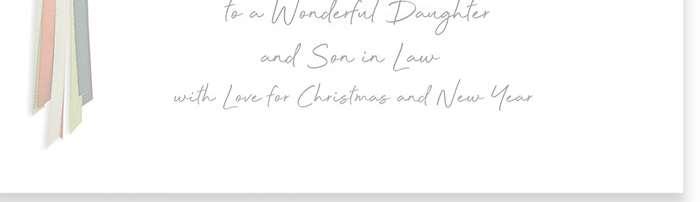 to a Wonderful Daughter
and Son in Law
with Love for Christmas and New Year